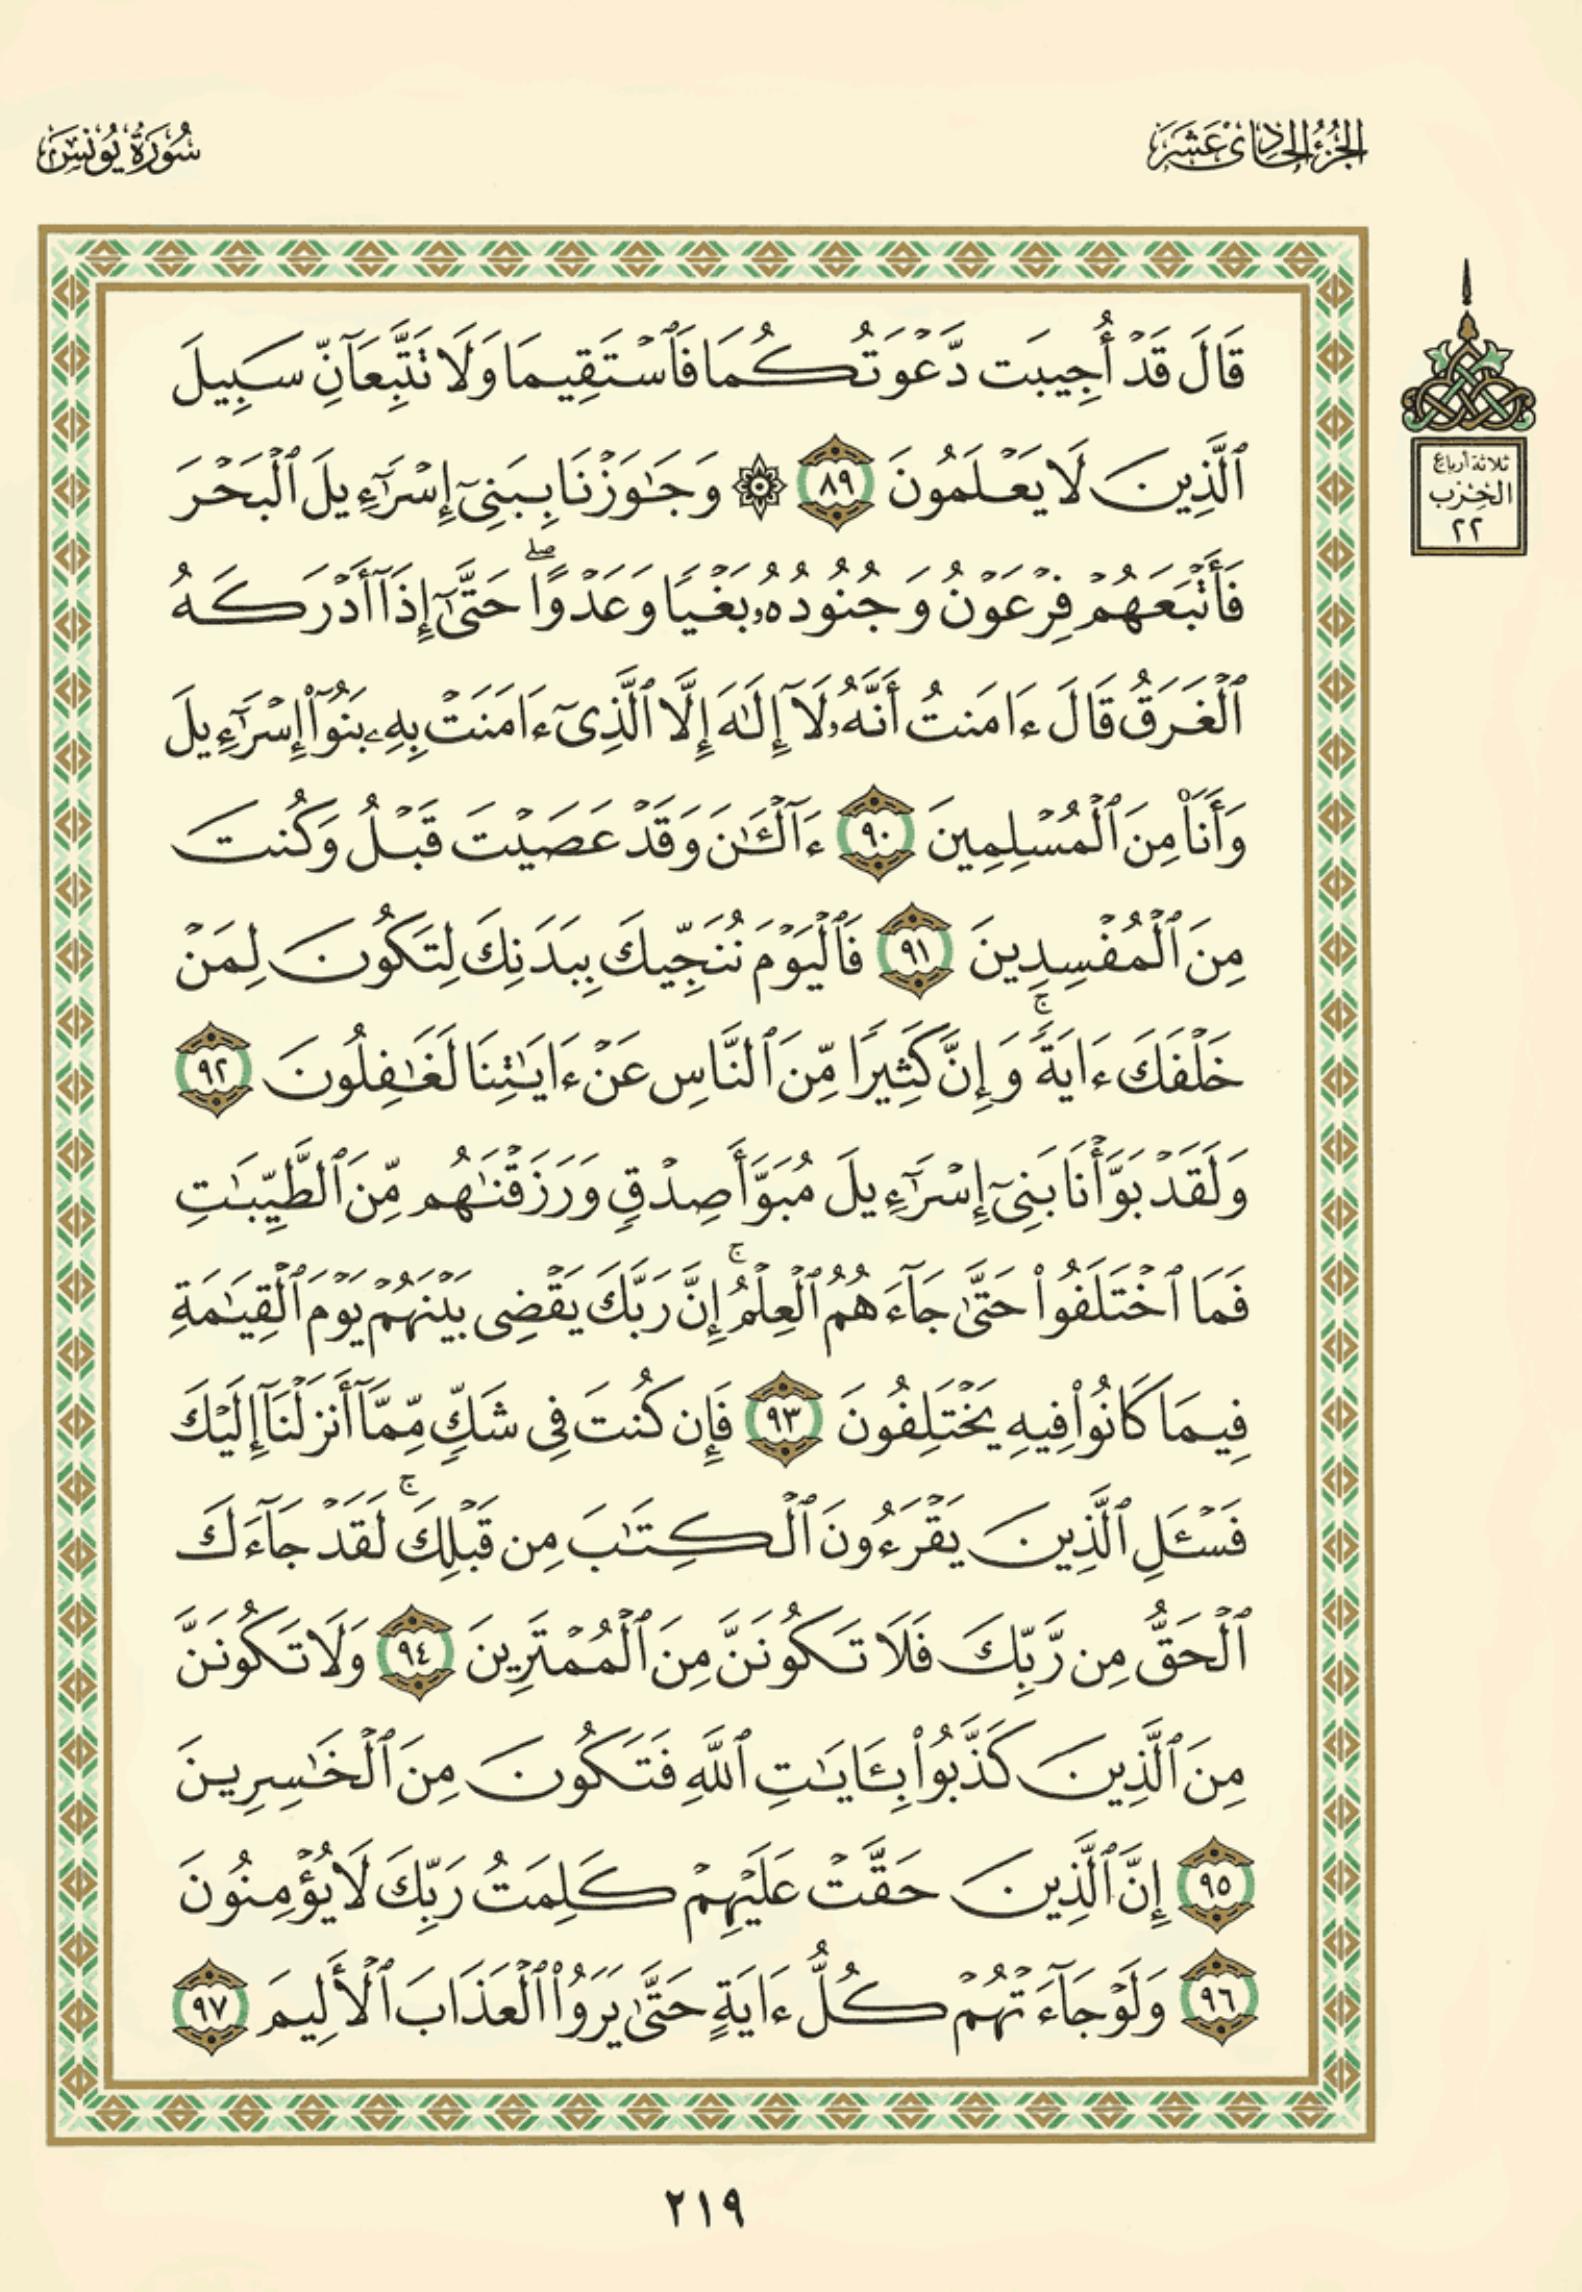 سُورَةُ يُونُسَ
الجُزْءُ الحَادِي عَشَرَ
ثلاثة أرباع
الحِزْب
٢٢
قَالَ قَدۡ أُجِيبَت دَّعۡوَتُكُمَا فَٱسۡتَقِيمَا وَلَا تَتَّبِعَآنِّ سَبِيلَ
ٱلَّذِينَ لَا يَعۡلَمُونَ ٨٩ ۞ وَجَٰوَزۡنَا بِبَنِيٓ إِسۡرَٰٓءِيلَ ٱلۡبَحۡرَ
فَأَتۡبَعَهُمۡ فِرۡعَوۡنُ وَجُنُودُهُۥ بَغۡيٗا وَعَدۡوًاۖ حَتَّىٰٓ إِذَآ أَدۡرَكَهُ
ٱلۡغَرَقُ قَالَ ءَامَنتُ أَنَّهُۥ لَآ إِلَٰهَ إِلَّا ٱلَّذِيٓ ءَامَنَتۡ بِهِۦ بَنُوٓاْ إِسۡرَٰٓءِيلَ
وَأَنَا۠ مِنَ ٱلۡمُسۡلِمِينَ ٩٠ ءَآلۡـَٰٔنَ وَقَدۡ عَصَيۡتَ قَبۡلُ وَكُنتَ
مِنَ ٱلۡمُفۡسِدِينَ ٩١ فَٱلۡيَوۡمَ نُنَجِّيكَ بِبَدَنِكَ لِتَكُونَ لِمَنۡ
خَلۡفَكَ ءَايَةٗۚ وَإِنَّ كَثِيرٗا مِّنَ ٱلنَّاسِ عَنۡ ءَايَٰتِنَا لَغَٰفِلُونَ ٩٢
وَلَقَدۡ بَوَّأۡنَا بَنِيٓ إِسۡرَٰٓءِيلَ مُبَوَّأَ صِدۡقٖ وَرَزَقۡنَٰهُم مِّنَ ٱلطَّيِّبَٰتِ
فَمَا ٱخۡتَلَفُواْ حَتَّىٰ جَآءَهُمُ ٱلۡعِلۡمُۚ إِنَّ رَبَّكَ يَقۡضِي بَيۡنَهُمۡ يَوۡمَ ٱلۡقِيَٰمَةِ
فِيمَا كَانُواْ فِيهِ يَخۡتَلِفُونَ ٩٣ فَإِن كُنتَ فِي شَكّٖ مِّمَّآ أَنزَلۡنَآ إِلَيۡكَ
فَسۡـَٔلِ ٱلَّذِينَ يَقۡرَءُونَ ٱلۡكِتَٰبَ مِن قَبۡلِكَۚ لَقَدۡ جَآءَكَ
ٱلۡحَقُّ مِن رَّبِّكَ فَلَا تَكُونَنَّ مِنَ ٱلۡمُمۡتَرِينَ ٩٤ وَلَا تَكُونَنَّ
مِنَ ٱلَّذِينَ كَذَّبُواْ بِـَٔايَٰتِ ٱللَّهِ فَتَكُونَ مِنَ ٱلۡخَٰسِرِينَ
٩٥ إِنَّ ٱلَّذِينَ حَقَّتۡ عَلَيۡهِمۡ كَلِمَتُ رَبِّكَ لَا يُؤۡمِنُونَ
٩٦ وَلَوۡ جَآءَتۡهُمۡ كُلُّ ءَايَةٍ حَتَّىٰ يَرَوُاْ ٱلۡعَذَابَ ٱلۡأَلِيمَ ٩٧
٢١٩